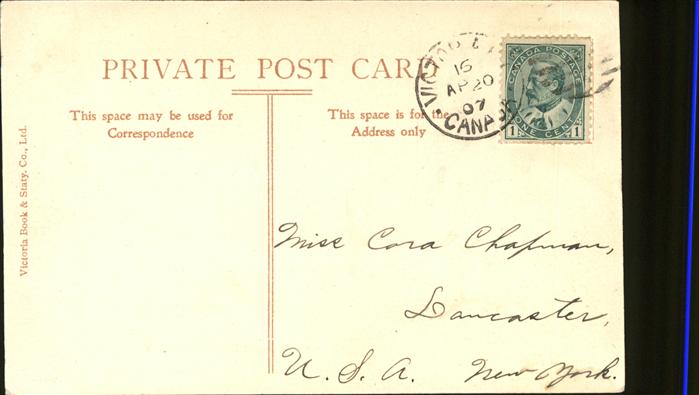 PRIVATE POST CARD
This space may be used for
Correspondence
This space is for the
Address only
Victoria Book & Staty. Co., Ltd.
VICTORIA
15
AP 20
07
CANADA
CANADA POSTAGE
1 ONE CENT 1
Miss Cora Chapman,
Lancaster,
U. S. A. New York.